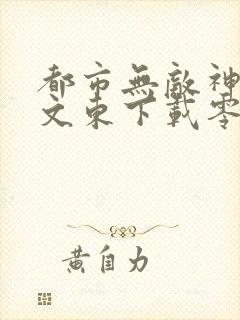 都市無敵神
文東下載零
黄自力